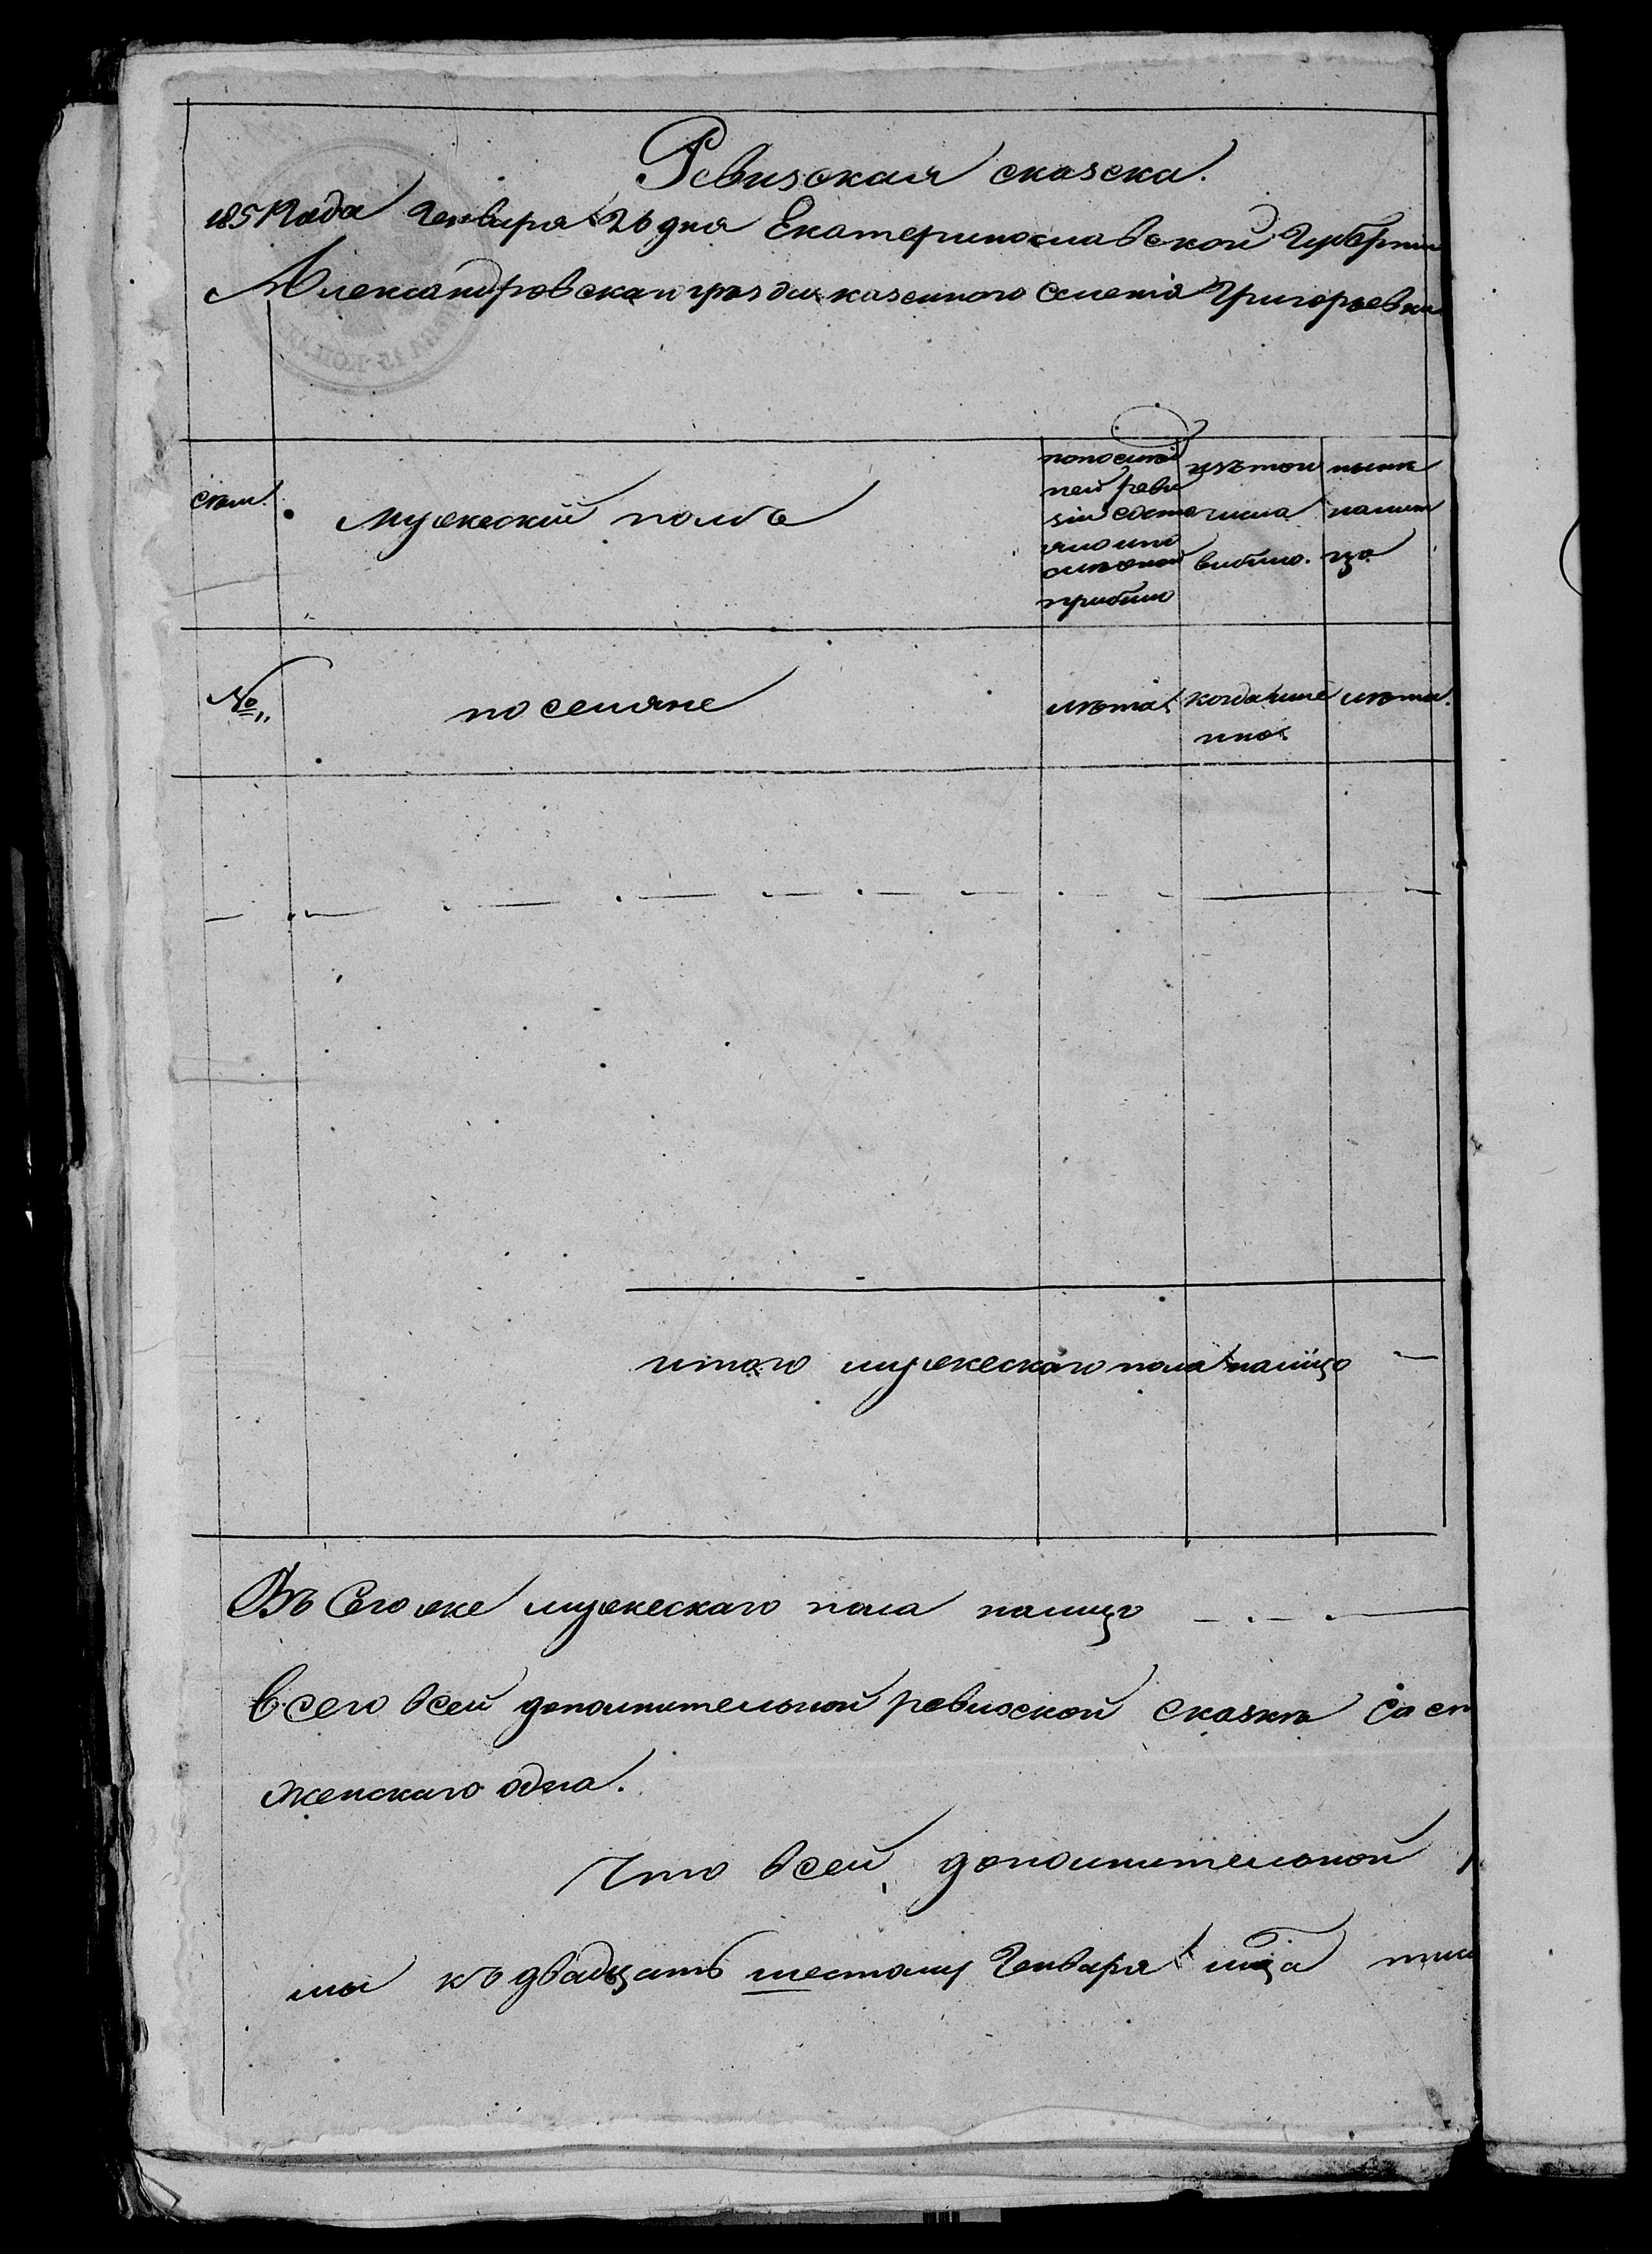 Ревизская сказка.
1851 Года Генваря 26 дня Екатеринославской Губерніи
Александровскаго уезда казенного Селенія Григорьевки
Мужескій полъ
по последней реви
зіи состо
яло или
после оной
прибыло
изътого
числа
выбыло.
ныне
налицо
№
поселяне
лѣта
когда име
нно
лѣта.
итого мужескаго пола налицо —
Въ Сего же мужескаго пола налицо — . — . —
Всего всей дополнительной ревиской сказкѣ сост
женскаго одна.
Что всей дополнительной
мы къ двадцать шестому Генваря мца
КОП.